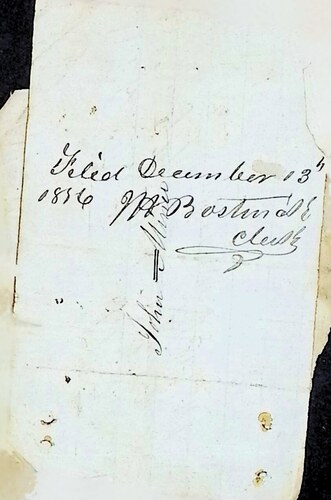 Filed December 13"
1856 Bostwick
Clerk
John